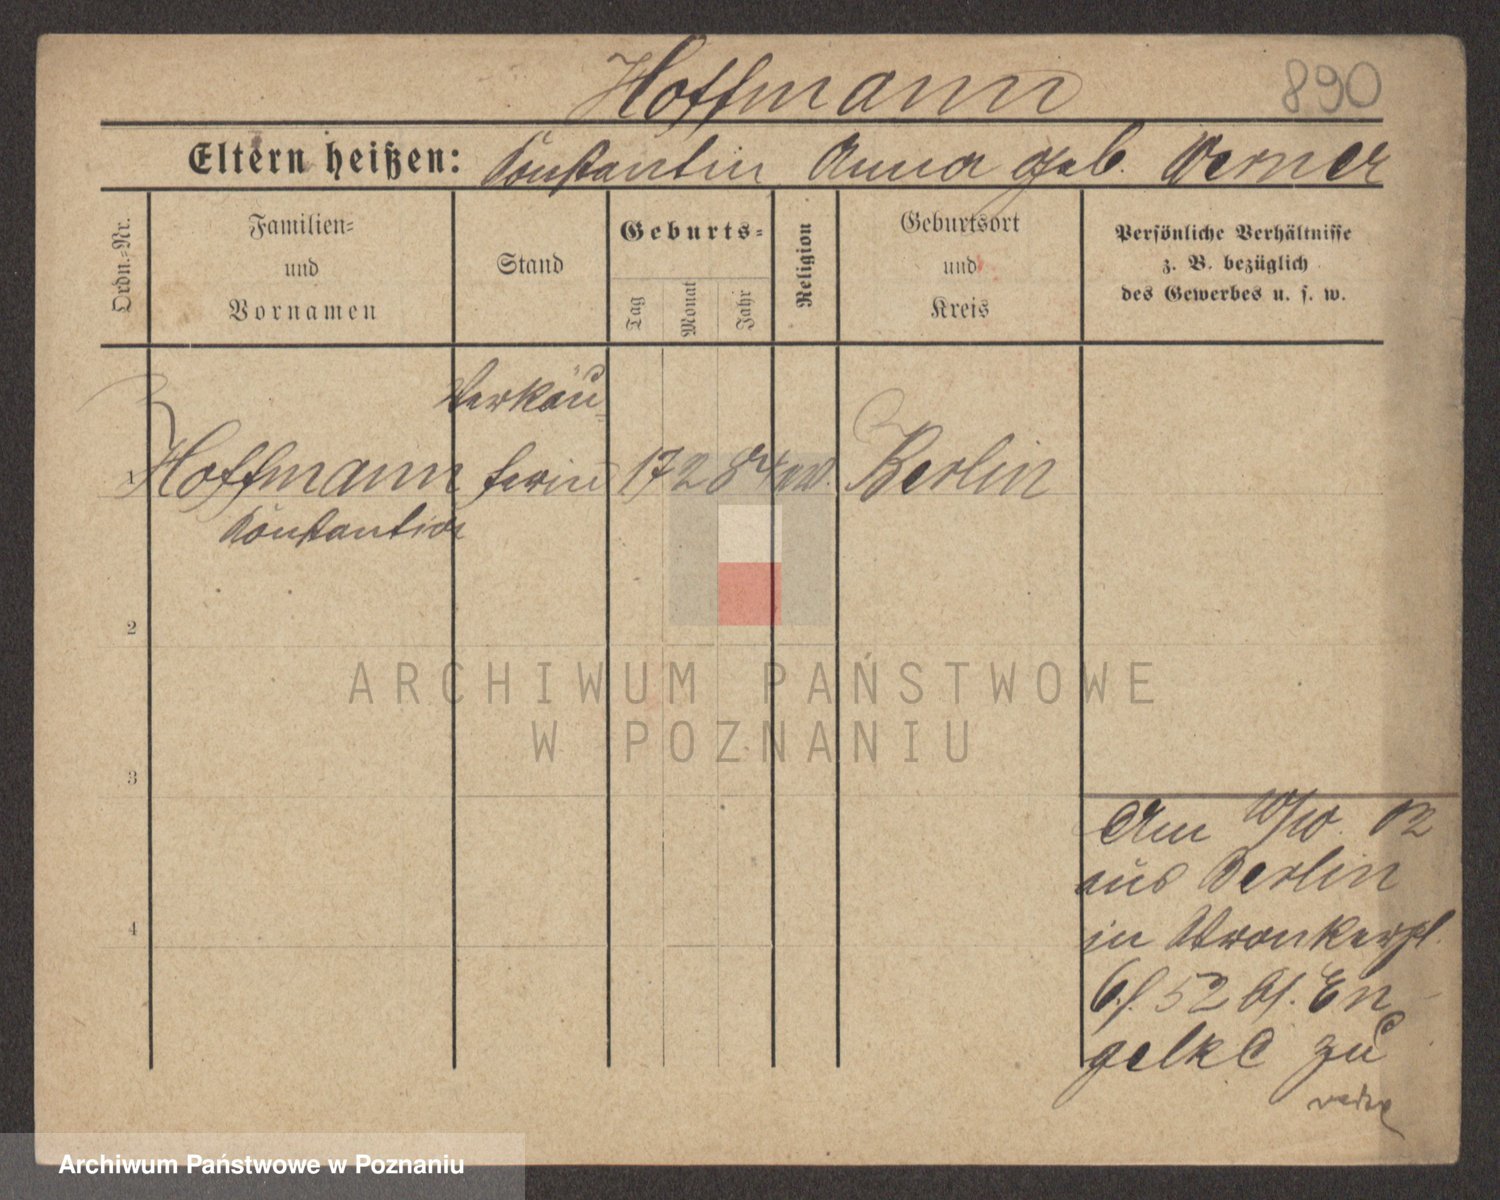 Hoffmann 890
Eltern heißen: Konstantin Anna geb. Werner
Ordn.-Nr.
Familien-
und
Vornamen
Stand
Geburts-
Tag
Monat
Jahr
Religion
Geburtsort
und
Kreis
Persönliche Verhältnisse
z. B. bezüglich
des Gewerbes u. s. w.
Verkäu
1 Hoffmann ferin 17 2 84 Berlin
Konstantin
2
ARCHIWUM PAŃSTWOWE
W POZNANIU
3
Am 10/10. 02
aus Berlin
4
in Wronkerpl.
52 bf. En-
gelke zu
Archiwum Państwowe w Poznaniu